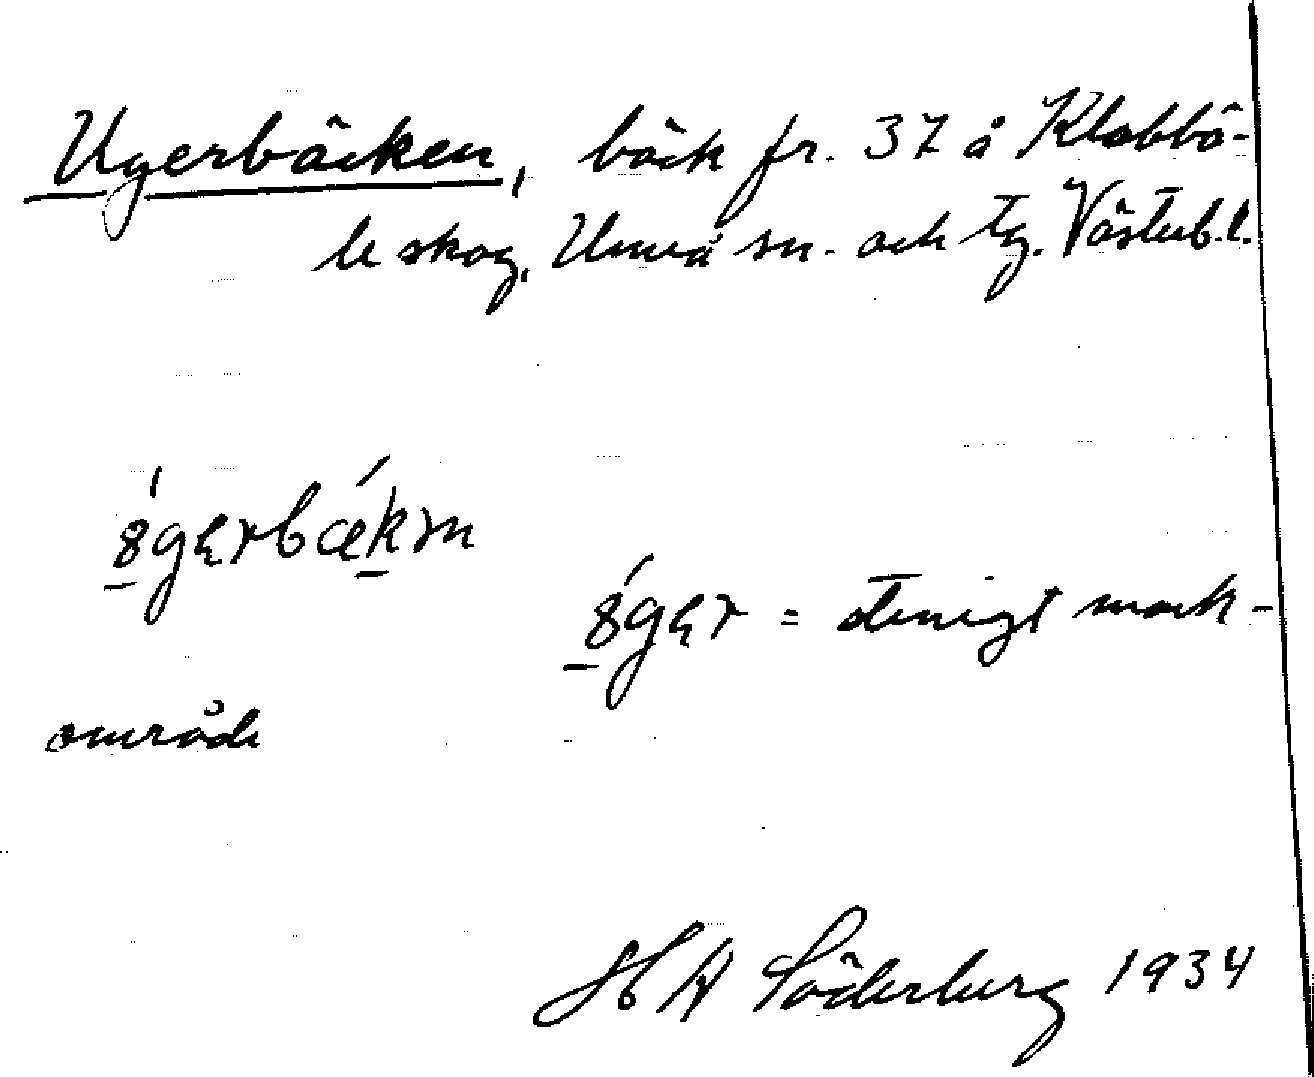 Ugerbäcken, bäck fr. 37 å Klabbö-
le skog, Umeå sn. och tg. Västerb.l.
ȣ́gęrbǽkɤn
ȣ́gęr = stenigt mark-
område
H W Söderberg 1934